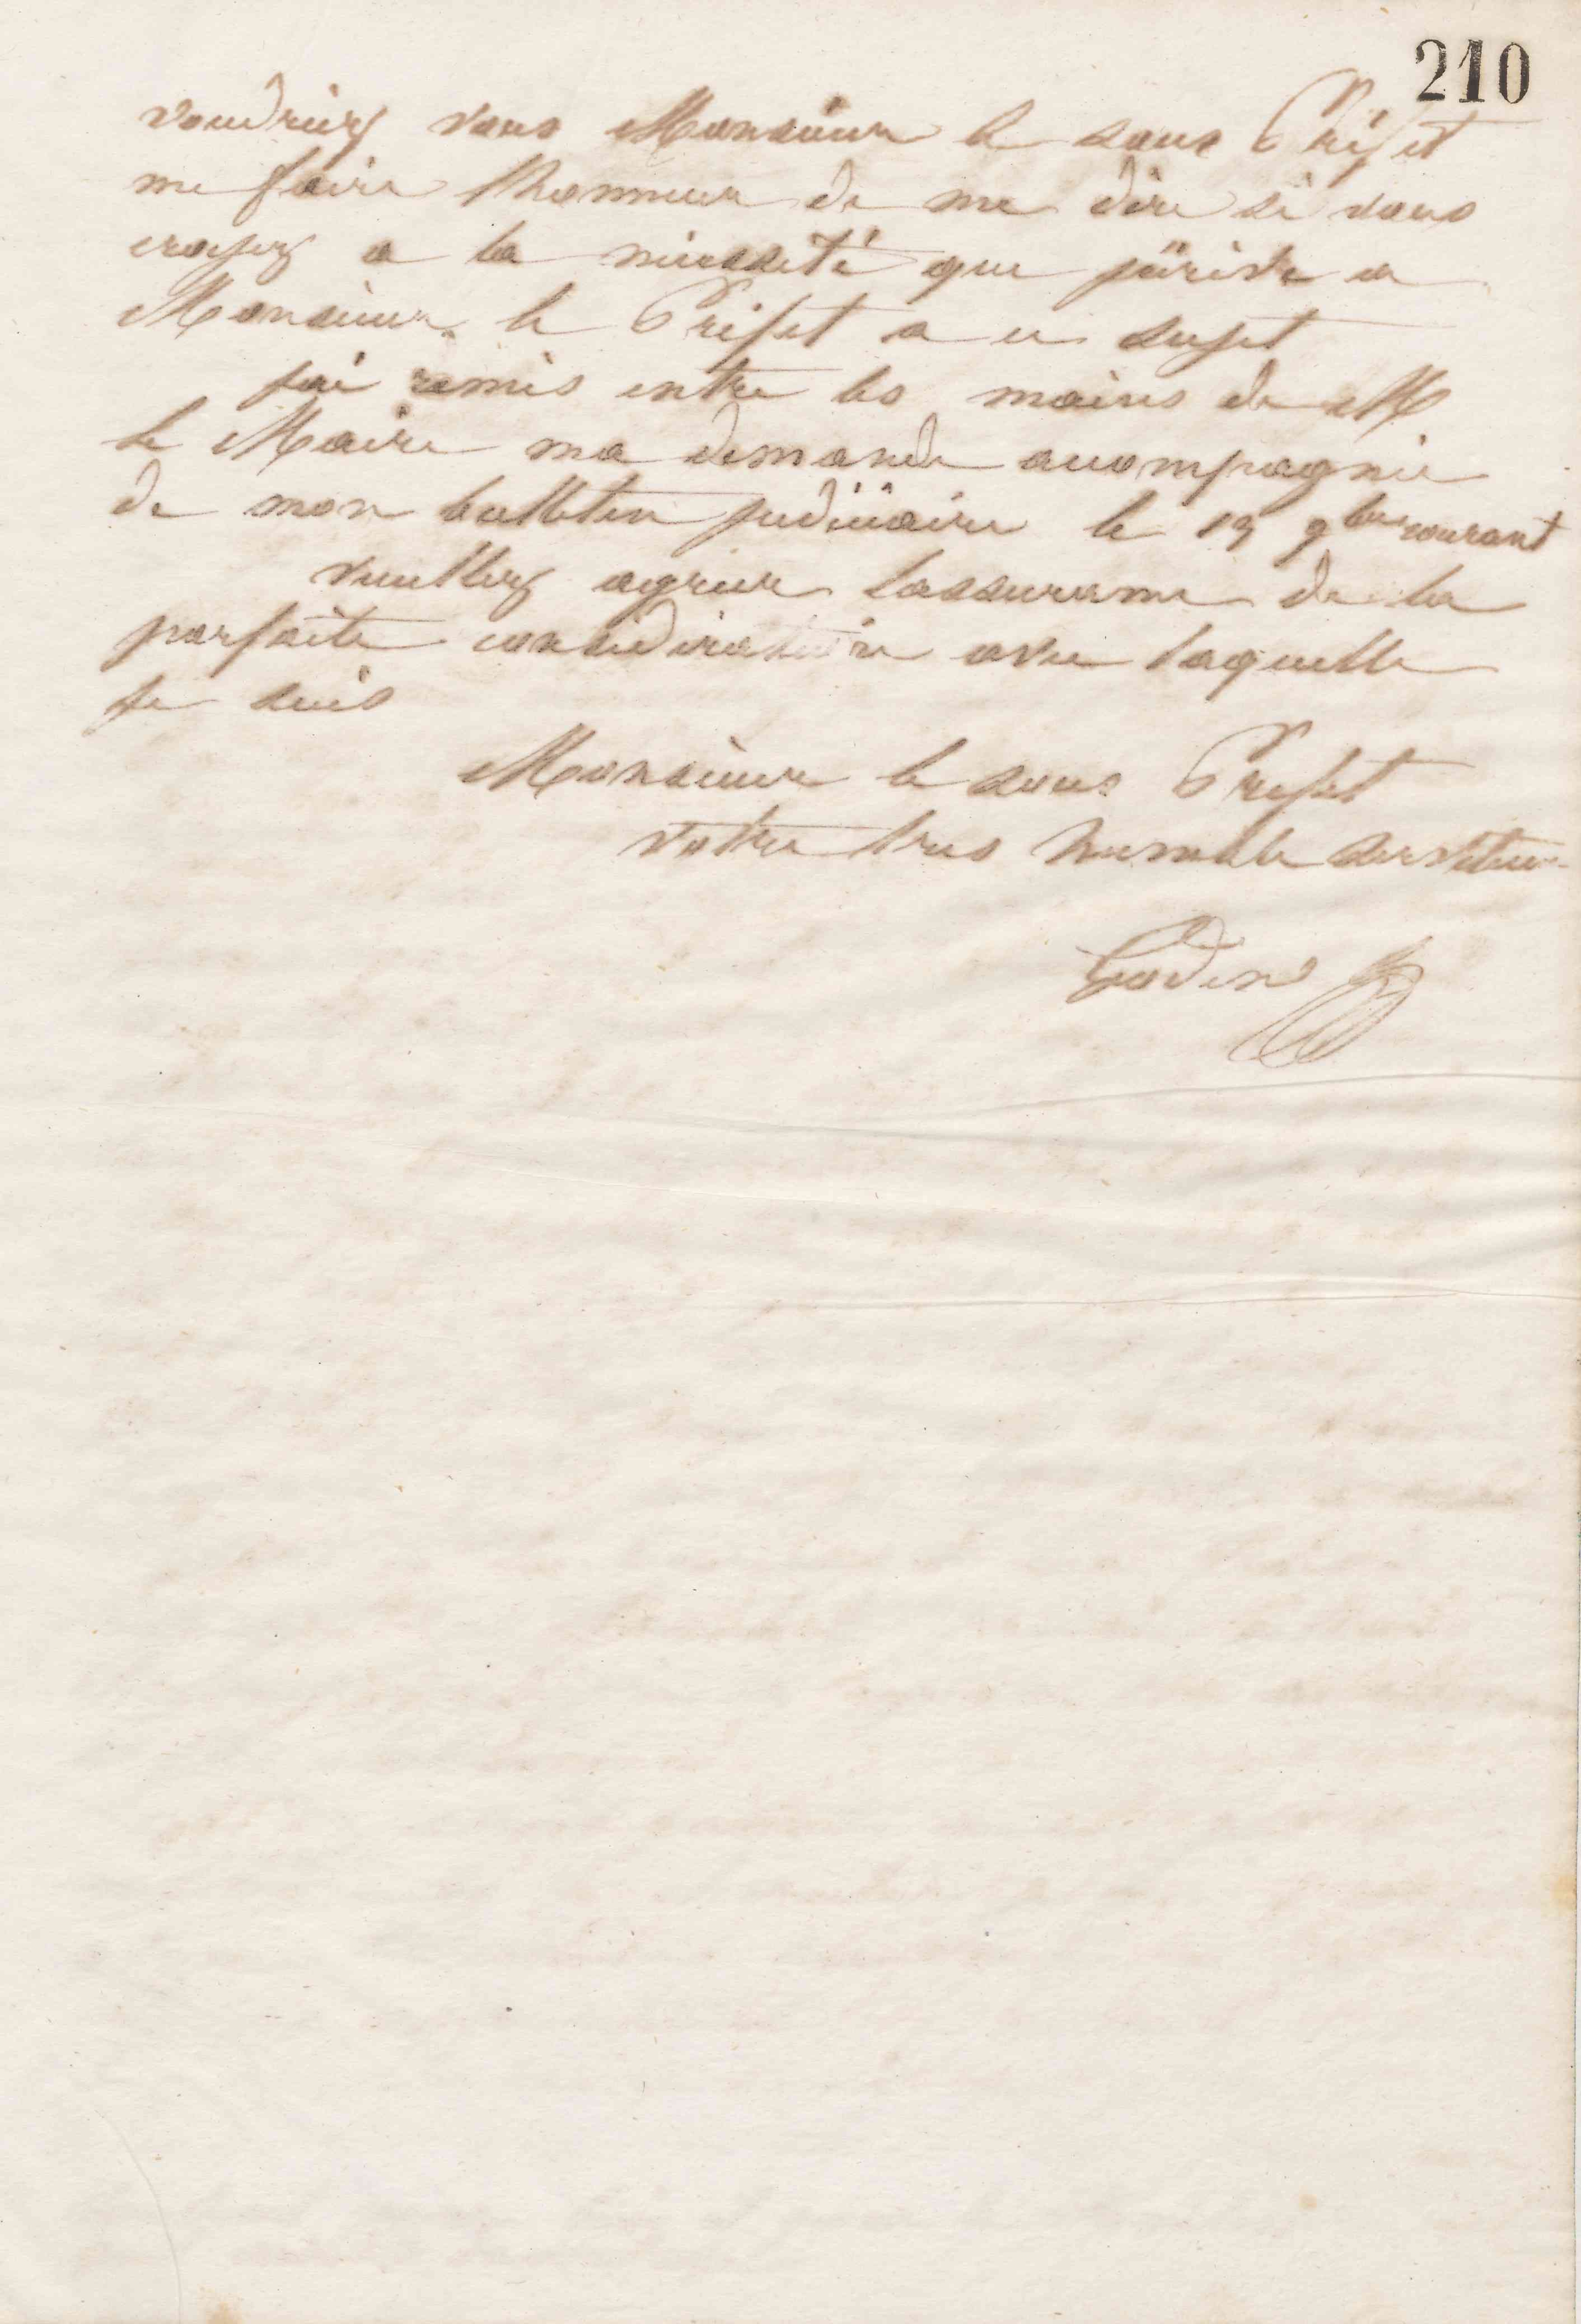 210
voudriez vous Monsieur le sous Préfet
me faire lhonneur de me dire si vous
croyez a la nécessité que jécrive a
Monsieur le Préfet a ce sujet
jai remis entre les mains de M
le Maire ma demande accompagnée
de mon bulletin judiciaire le 13 9bre courant
veuillez agréer lassurance de la
parfaite considération avec laquelle
je suis
Monsieur le sous Prefet
votre tres humble serviteur
Godin